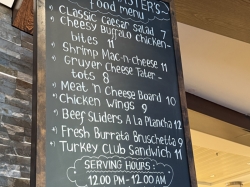 STER'S
food menu
Classic caesar salad 7
Cheesy Buffalo Chicken-
bites 11
Shrimp Mac-n-cheese 11
Gruyer Cheese Tater-
tots 8
Meat 'n Cheese Board 10
Chicken Wings 9
Beef Sliders A La Plancha 12
Fresh Burrata Bruschetta 9
Turkey Club Sandwich 11
SERVING HOURS:
12:00 PM - 12:00 AM